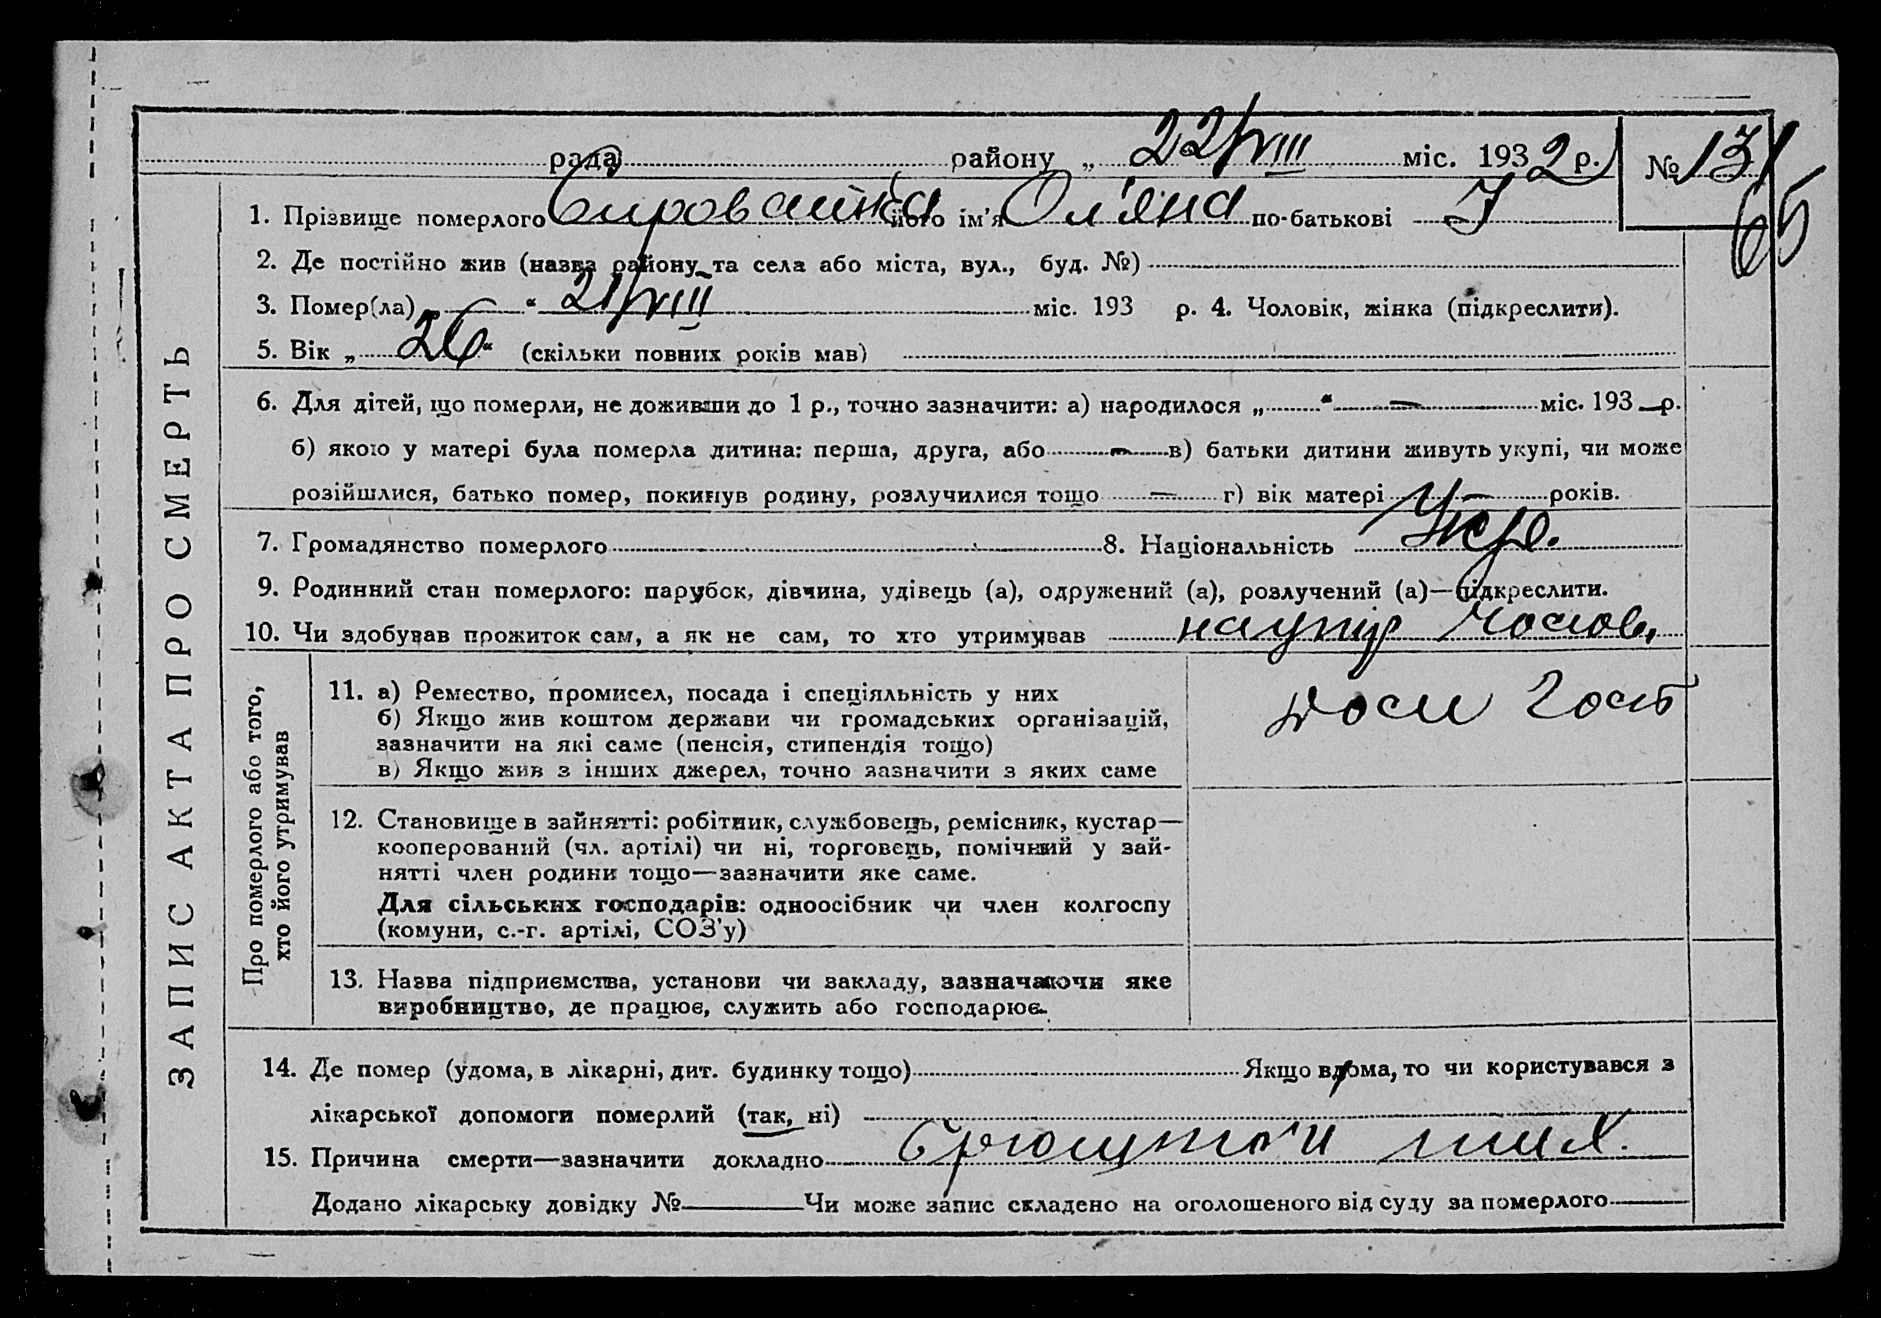 рада району „ 22/VIII міс. 1932 р. № 131
65
1. Прізвище померлого Сироватка його ім'я Ол'яна по-батькові I
2. Де постійно жив (назва району та села або міста, вул., буд. №)
3. Помер(ла) „ “ 21/VIII міс. 193 р. 4. Чоловік, жінка (підкреслити).
5. Вік „ 26 “ (скільки повних років мав)
6. Для дітей, що померли, не доживши до 1 р., точно зазначити: а) народилося „ “ — міс. 193 — р.
б) якою у матері була померла дитина: перша, друга, або — в) батьки дитини живуть укупі, чи може
розійшлися, батько помер, покинув родину, розлучилися тощо — г) вік матері — років.
7. Громадянство померлого 8. Національність Укр.
9. Родинний стан померлого: парубок, дівчина, удівець (а), одружений (а), розлучений (а)—підкреслити.
10. Чи здобував прожиток сам, а як не сам, то хто утримував на утр
ЗАПИС АКТА ПРО СМЕРТЬ
Про померлого або того,
хто його утримував
11. а) Ремество, промисел, посада і спеціяльність у них
б) Якщо жив коштом держави чи громадських організацій,
зазначити на які саме (пенсія, стипендія тощо)
в) Якщо жив з інших джерел, точно зазначити з яких саме
дом гост
12. Становище в зайнятті: робітник, службовець, ремісник, кустар—
кооперований (чл. артілі) чи ні, торговець, помічний у зай-
нятті член родини тощо—зазначити яке саме.
Для сільських господарів: одноосібник чи член колгоспу
(комуни, с.-г. артілі, СОЗ'у)
13. Назва підприємства, установи чи закладу, зазначаючи яке
виробництво, де працює, служить або господарює.
14. Де помер (удома, в лікарні, дит. будинку тощо) Якщо вдома, то чи користувався з
лікарської допомоги померлий (так, ні)
15. Причина смерти—зазначити докладно брюшной тиф.
Додано лікарську довідку № Чи може запис складено на оголошеного від суду за померлого